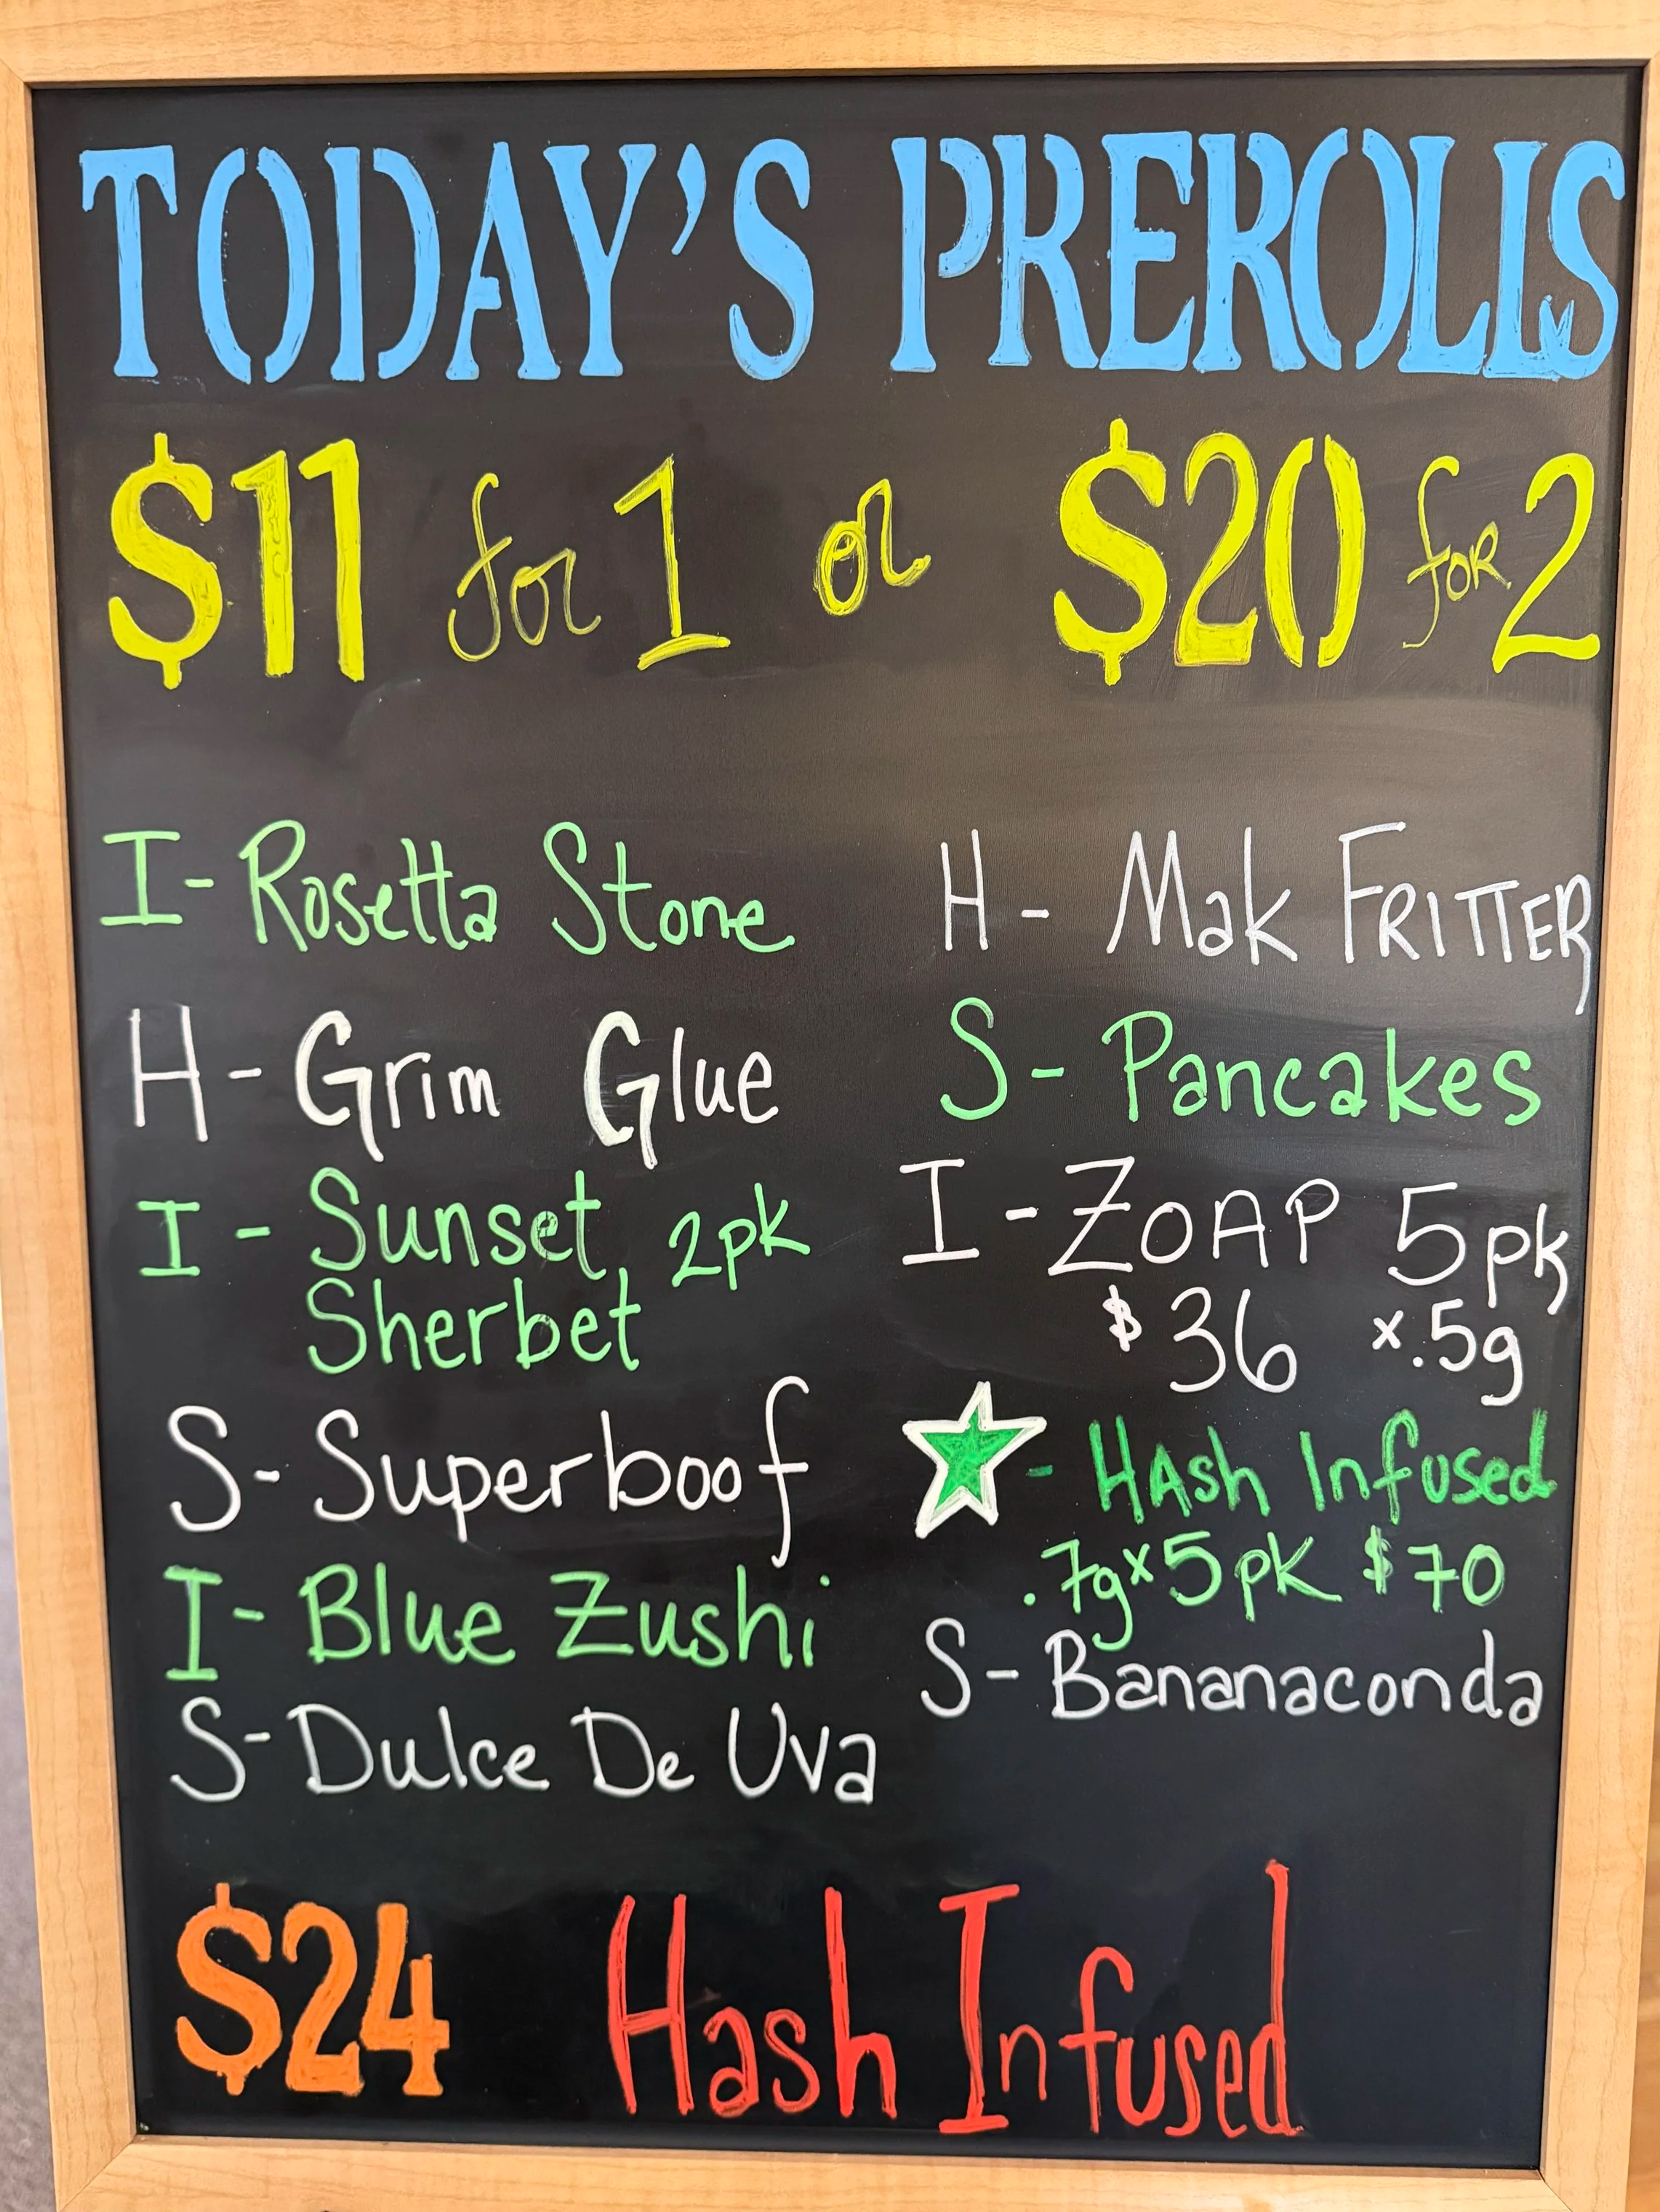 TODAY'S PREROLLS
$11 for 1 or $20 for 2
I- Rosetta Stone
H- Grim Glue
I - Sunset 2pk
Sherbet
S- Superboof
I- Blue Zushi
S- Dulce De Uva
H- Mak FRITTER
S- Pancakes
I - ZOAP 5pk
$36 x.5g
- HAsh Infused
.7gx5pk $70
S- Bananaconda
$24 Hash Infused